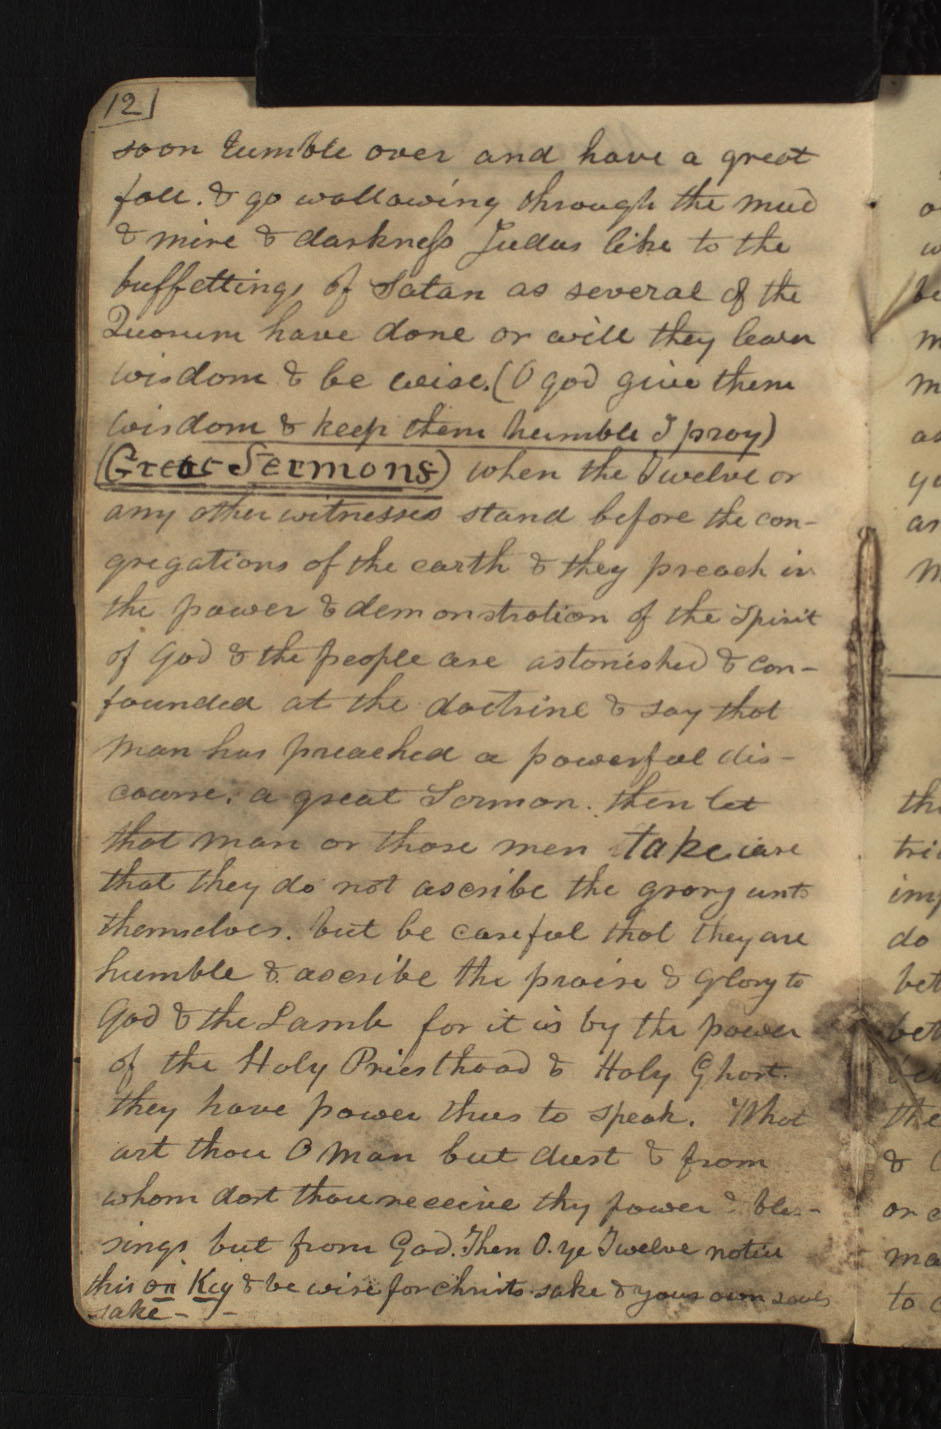 12
soon tumble over and have a great
fall. & go wallowing through the mud
& mire & darkness Judas like to the
buffettings of Satan as several of the
Quorum have done or will they learn
wisdom & be wise. (O god give them
wisdom & keep them humble I pray)
(Great Sermons) when the Twelve or
any other witnesses stand before the con-
gregations of the earth & they preach in
the power & demonstration of the Spirit
of God & the people are astonished & con-
founded at the doctrine & say that
man has preached a powerful dis-
course, a great Sermon. then let
that man or those men take care
that they do not ascribe the glory unto
themselves. but be careful that they are
humble & ascribe the praise & glory to
God & the Lamb for it is by the power
of the Holy Priesthood & Holy Ghost
they have power thus to speak. What
art thou O Man but dust & from
whom dost thou receive thy power & bles-
sings but from God. Then O. ye Twelve notice
this on Key & be wise for christs sake & your own souls
sake - -